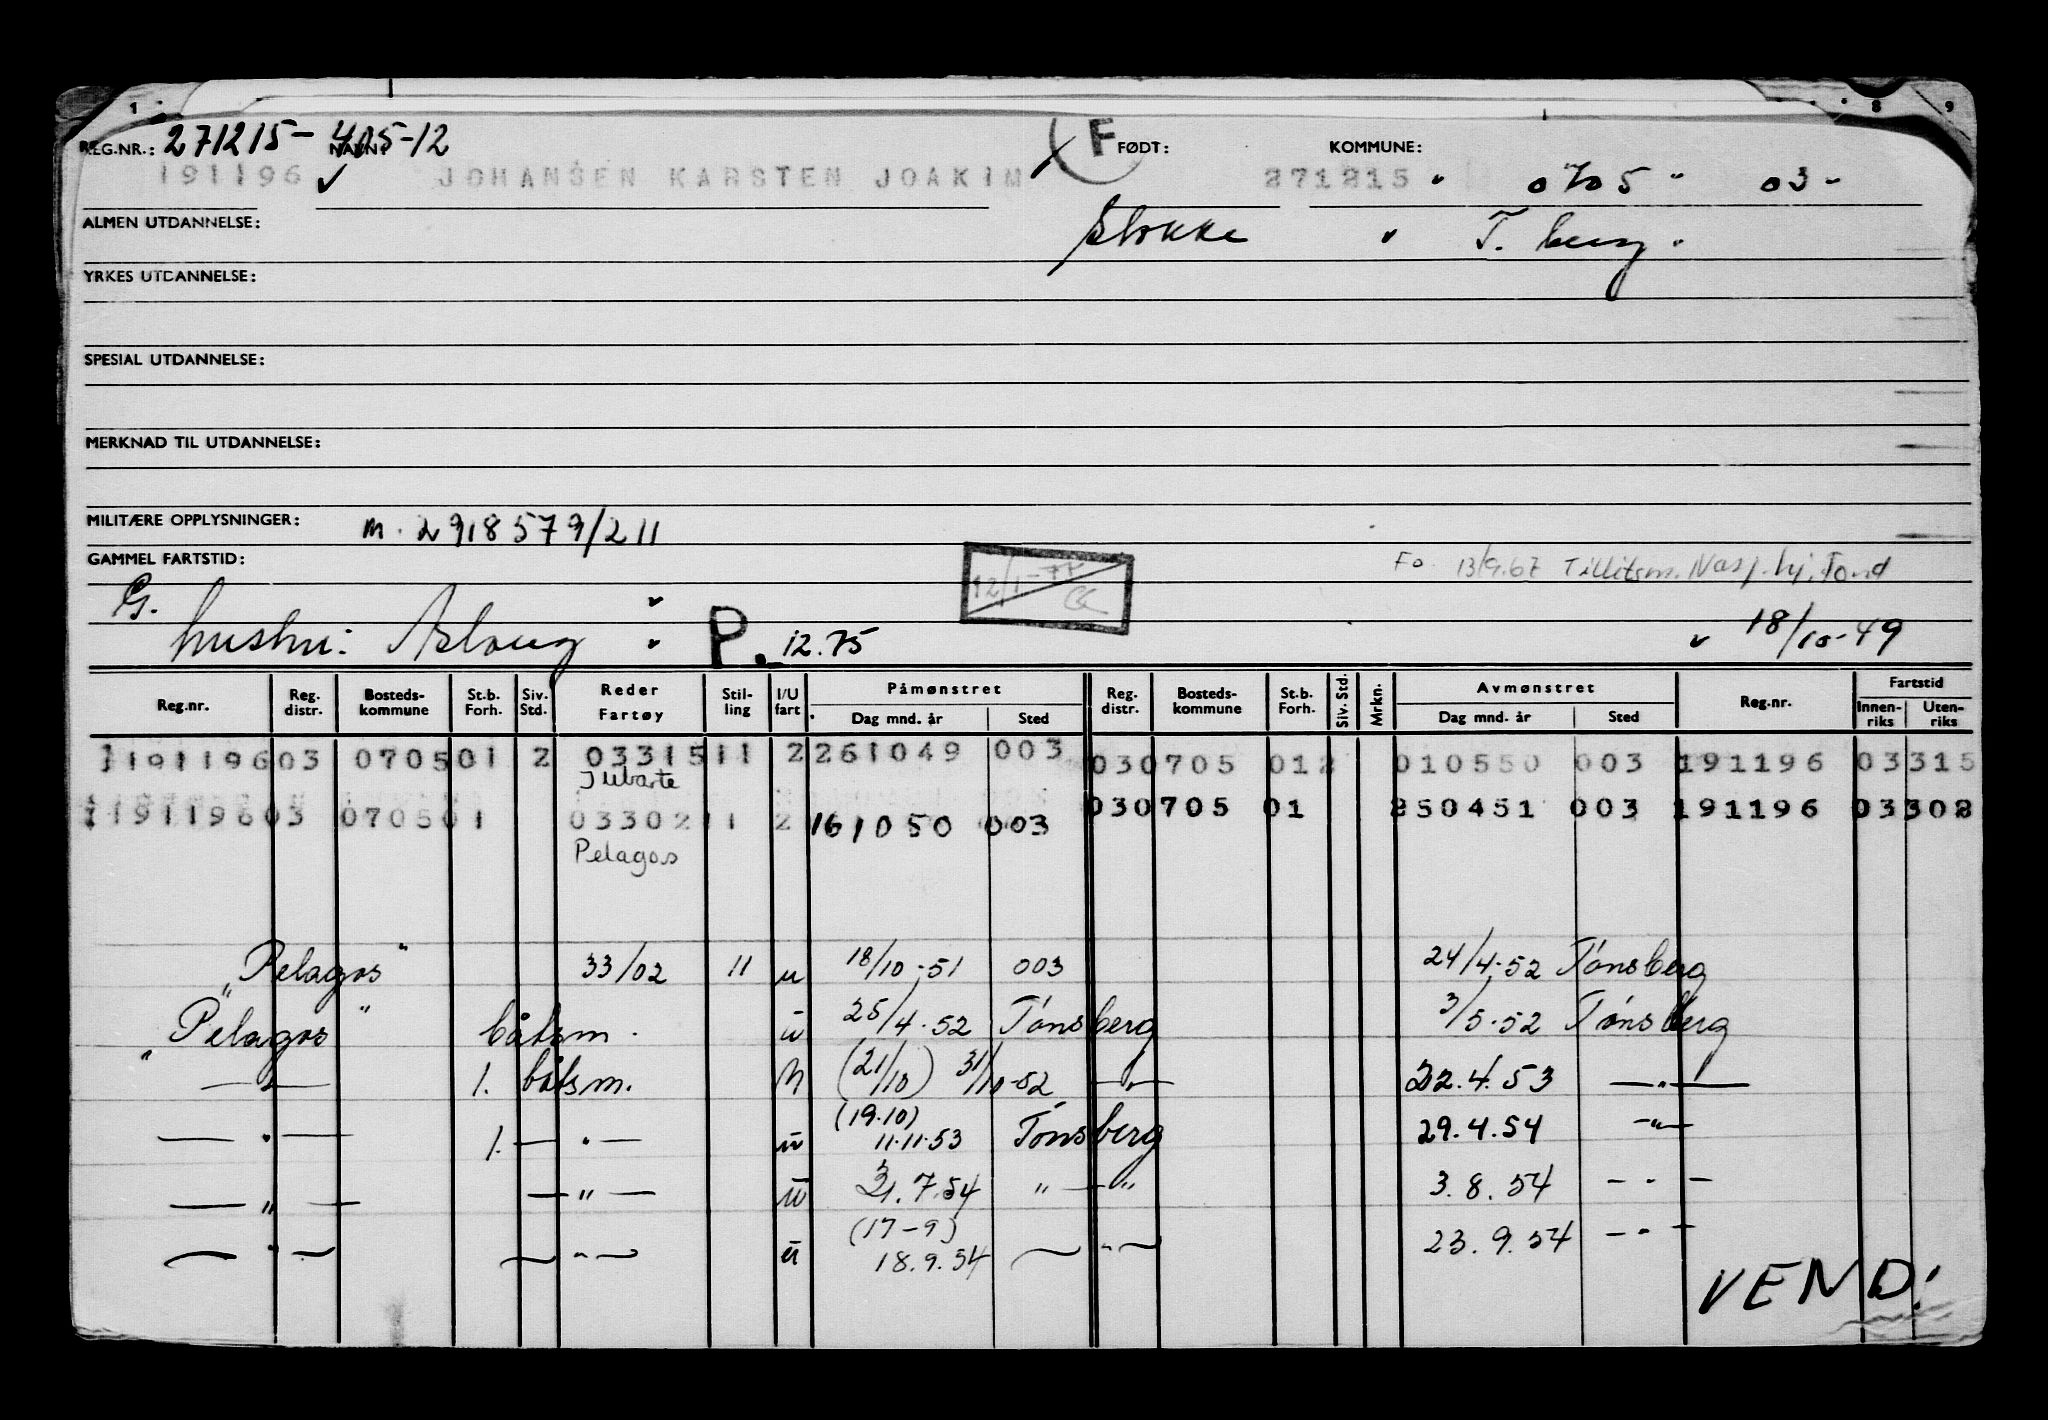 1 8 9
REG.NR.: 271215- 405-12 NAVN: F FØDT: KOMMUNE:
191196 ✓ JOHANSEN KARSTEN JOAKIM 271215 " 0705 " 03 -
ALMEN UTDANNELSE: Stokke " T. berg.
YRKES UTDANNELSE:
SPESIAL UTDANNELSE:
MERKNAD TIL UTDANNELSE:
MILITÆRE OPPLYSNINGER: M. 2918579/211
GAMMEL FARTSTID: 12/1-77 Fo. 13/9.67 Tillitsm. Nasj. hj. Fond
G.
hustru: Aslaug P. 12.75 18/10-49
Reg.nr. Reg. distr. Bosteds-kommune St.b. Forh. Siv. Std. Reder Fartøy Stil-ling I/U fart Påmønstret Dag mnd. år Sted Reg. distr. Bosteds-kommune St.b. Forh. Siv. Std. Mrkn. Avmønstret Dag mnd. år Sted Reg.nr. Fartstid Innen-riks Uten-riks
1 191196 03 0705 01 2 03315 11 2 261049 003 03 0705 01 2 010550 003 191196 03315
Jubarte
1 191196 03 0705 01 03302 11 2 161050 003 03 0705 01 250451 003 191196 03302
Pelagos
"Pelagos" 33/02 11 u 18/10-51 003 24/4-52 Tønsberg
"Pelagos" båtsm. u 25/4-52 Tønsberg 3/5-52 Tønsberg
— " — 1. båtsm. u (21/10) 31/10-52 — " — 22.4.53 — " —
— " — 1. — " — u (19.10) 11.11.53 Tønsberg 29.4.54 — " —
— " — — " — u 31.7.54 " — " 3.8.54 — " —
— " — — " — u (17-9) 18.9.54 — " — 23.9.54 — " —
VEND!